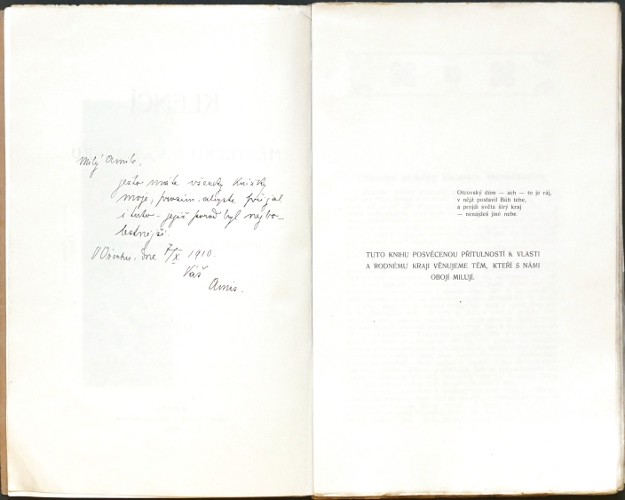 Milý Arnile,
ježto máte všecky knížky
moje, prosím, abyste přijal
i tuto - jejíž porod byl nejbo-
lestnější.
V Domžc., dne 7/X 1910.
Váš
Arnis.
KLENČÍ
Otcovský dóm — ach — to je ráj,
v nějž postavil Bůh tebe,
a projdi světa širý kraj
— nenajdeš jiné nebe.
TUTO KNIHU POSVĚCENOU PŘÍTULNOSTÍ K VLASTI
A RODNÉMU KRAJI VĚNUJEME TĚM, KTEŘÍ S NÁMI
OBOJÍ MILUJÍ.